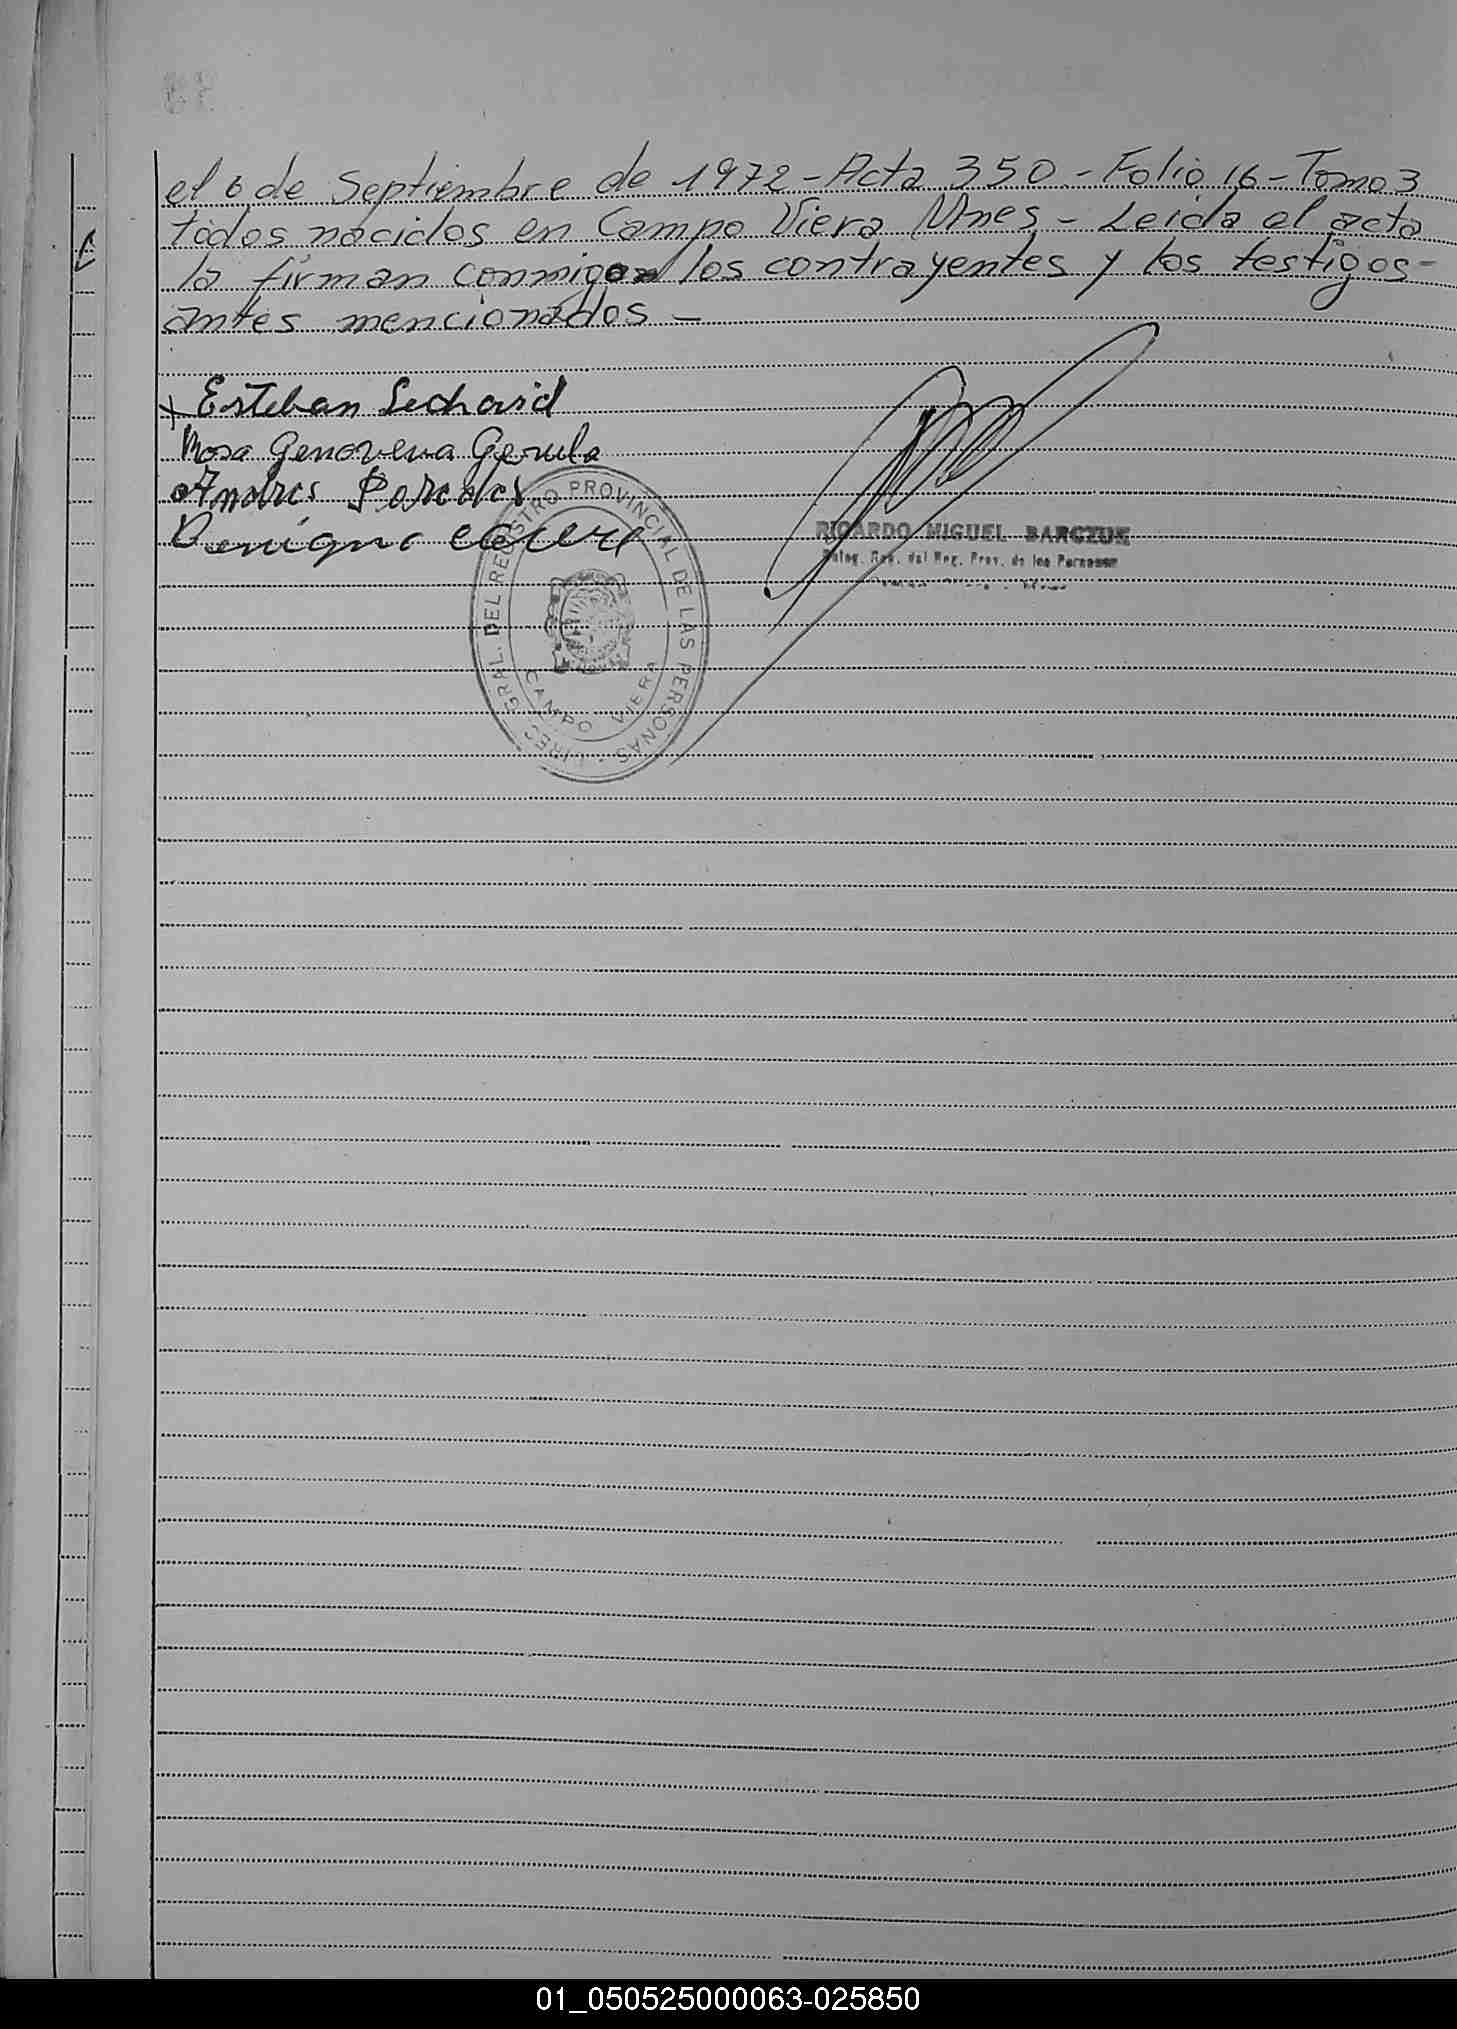 el 6 de Septiembre de 1972 - Acta 350 - Folio 16 - Tomo 3
todos nacidos en Campo Viera Mnes - Leida el acta
la firman conmigo los contrayentes y los testigos -
antes mencionados -
Esteban Sechovid
Rosa Genoveva Gerula
Andres Paredes
Benigna
DIREC. GRAL. DEL REGISTRO PROVINCIAL DE LAS PERSONAS
CAMPO VIERA
RICARDO MIGUEL BARCZUK
Deleg. Reg. del Reg. Prov. de las Personas
01_050525000063-025850